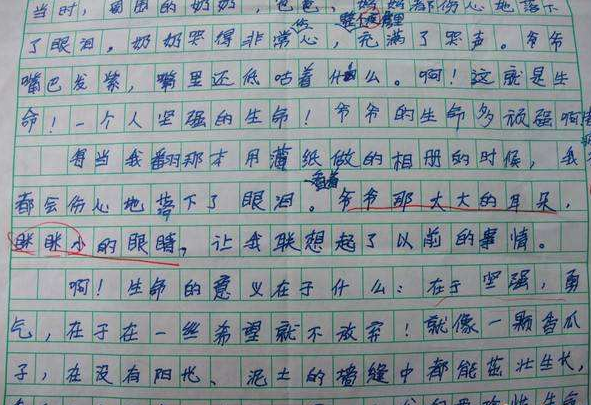 当时，周围的奶奶，爸爸，妈妈都伤心地落下
了眼泪。奶奶哭得非常伤心，整个房里充满了哭声。爷爷
嘴巴发紫，嘴里还低咕着什么。啊！这就是生
命！一个人坚强的生命！爷爷的生命多顽强啊
每当我翻那本用薄纸做的相册的时候，我
都会伤心地落下了眼泪。看着爷爷那大大的耳朵，
眯眯小的眼睛，让我联想起了以前的事情。
啊！生命的意义在于什么：在于坚强，勇
气，在于在一丝希望就不放弃！就像一颗香瓜
子，在没有阳光、泥土的墙缝中都能茁壮生长，